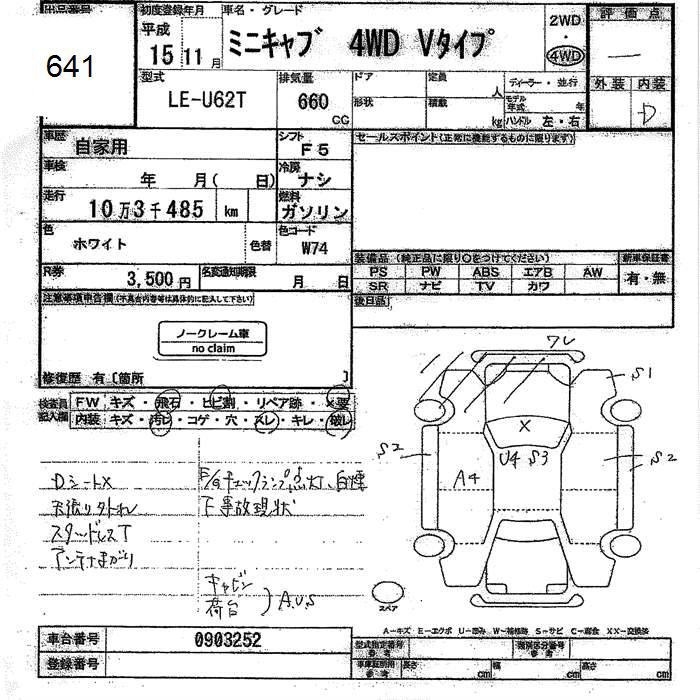 641
初度登録年月 車名・グレード 2WD 評価点
平成 15 11 月 ミニキャブ 4WD Vタイプ ・ 4WD —
型式 排気量 ドア 定員 人 ディーラー・並行 外装 内装
LE-U62T 660 CC 形状 積載 kg モデル年式 年 ハンドル 左・右 D
車歴 自家用 シフト F5 セールスポイント(正常に機能するものに限ります)
車検 年 月( 日) 冷房 ナシ
走行 10万3千485 km 燃料 ガソリン
色 ホワイト 色替 色コード W74
装備品(純正品に限り○をつけてください) 新車保証書
PS PW ABS エアB AW 有・無
SR ナビ TV カワ
R券 3,500円 名変通知期限 月 日
後日品
注意事項申告欄(不具合内容等は具体的に記入して下さい)
ノークレーム車
no claim
修復歴 有〔箇所 〕
検査員記入欄 FW キズ・飛石・ヒビ割・リペア跡・×要
内装 キズ・汚レ・コゲ・穴・スレ・キレ・破レ
ワレ
S1
X
S2 U4 S3 S2
A4
DシートX E/Gチェックランプ点灯、白煙
天張り外れ 下事故現状
スタッドレスT
アンテナまがり
キャビン
荷台 A.U.S
スペア
A-キズ E-エクボ U-凹み W-補修跡 S-サビ C-腐食 XX-交換済
車台番号 0903252 型式指定番号 参考 類別区分番号 参考
登録番号 車庫証明用 参考 長さ cm 幅 cm 高さ cm